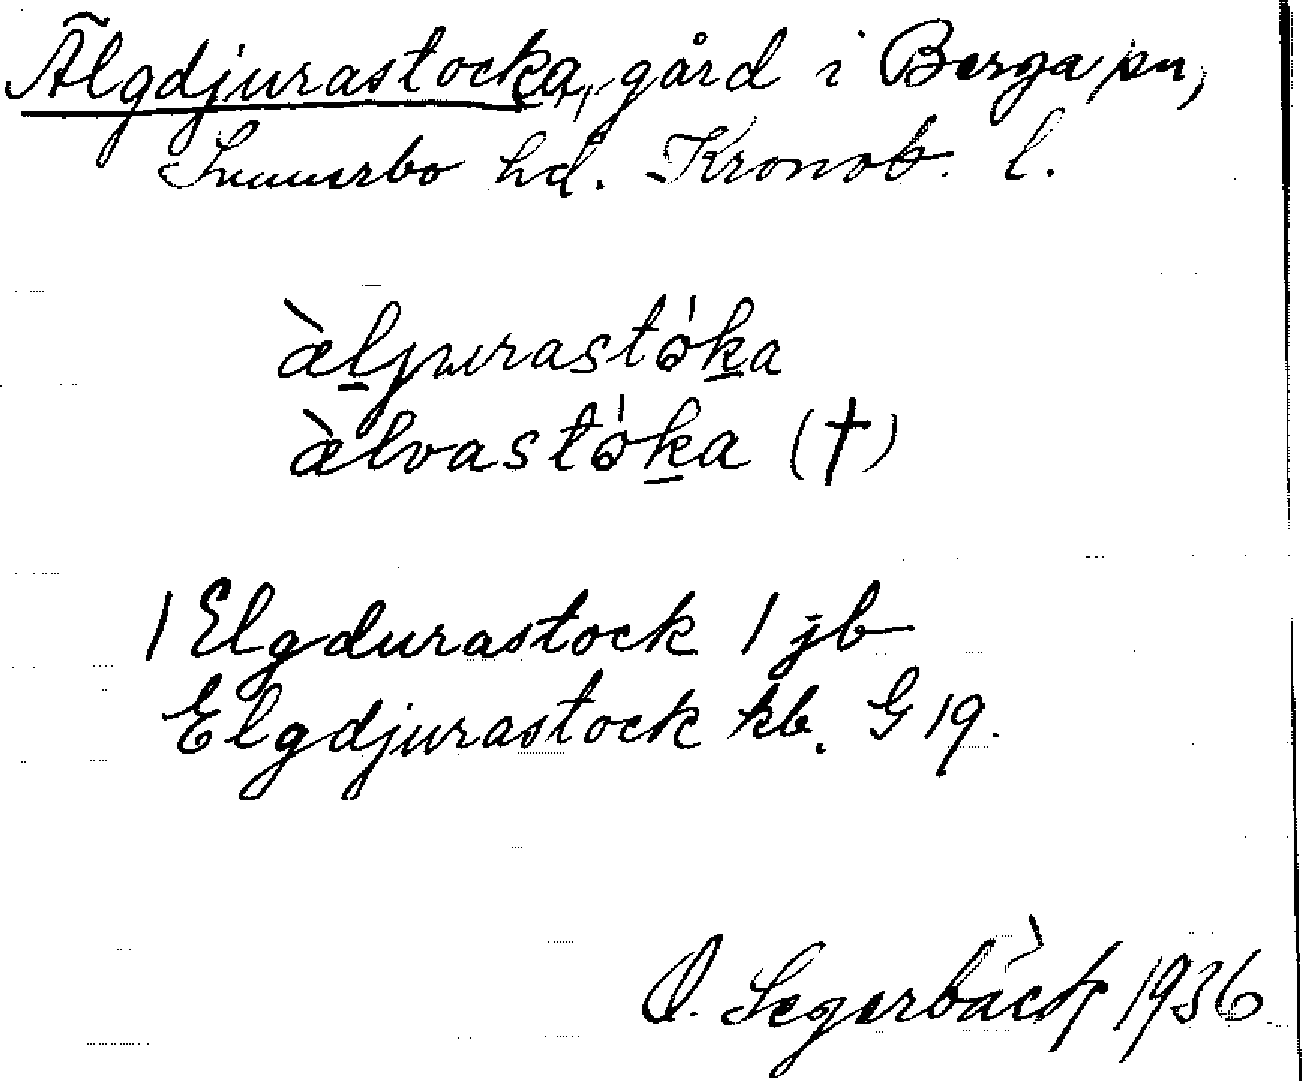 Älgdjurastocka, gård i Berga sn,
Sunnerbo hd. Kronob. l.
æ̀ljurastȯ́ka
æ̀lvastȯ́ka (†)
1 Elgdurastock 1 jb
Elgdjurastock kb. G 19.
O. Segerbäck 1936